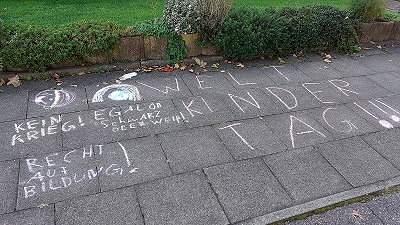 WELT
KINDER
TAG!!!
KEIN
KRIEG!
EGAL OB
SCHWARZ
ODER WEIß!
RECHT
AUF
BILDUNG!